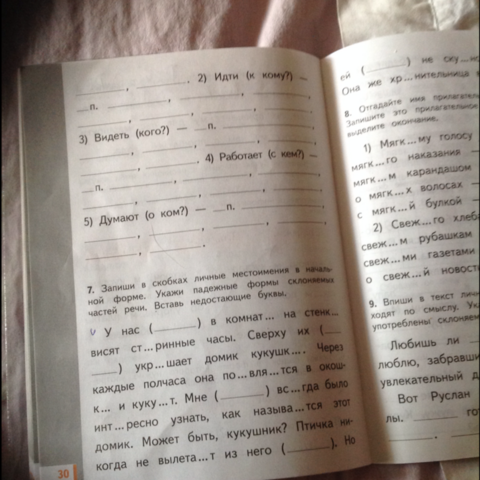 ______, ______. 2) Идти (к кому?) —
__п. ______, ______, ______,
______, ______, ______.
3) Видеть (кого?) — __п. ______,
______, ______, ______,
______, ______. 4) Работает (с кем?) —
__п. ______, ______, ______,
______, ______, ______.
5) Думают (о ком?) — __п. ______,
______, ______, ______,
______, ______.
7. Запиши в скобках личные местоимения в началь-
ной форме. Укажи падежные формы склоняемых
частей речи. Вставь недостающие буквы.
У нас (______) в комнат... на стенк...
висят ст...ринные часы. Сверху их (____
____) укр...шает домик кукушк.... Через
каждые полчаса она по...вля...тся в окош-
к... и куку...т. Мне (______) вс...гда было
инт...ресно узнать, как называ...тся этот
домик. Может быть, кукушник? Птичка ни-
когда не вылета...т из него (______). Но
30
ей (______) не ску...
Она же хр...нительница
8. Отгадайте имя прилагатель
Запишите это прилагательное
выделите окончание.
1) Мягк...му голосу
мягк...го наказания
мягк...м карандашом
о мягк...х волосах —
с мягк...й булкой —
2) Свеж...го хлеба
свеж...м рубашкам
свеж...ми газетами
о свеж...й новост
9. Впиши в текст личн
ходят по смыслу. Ук
употреблены склоняем
Любишь ли
люблю, забравши
увлекательный д
Вот Руслан
лы. ______ гот